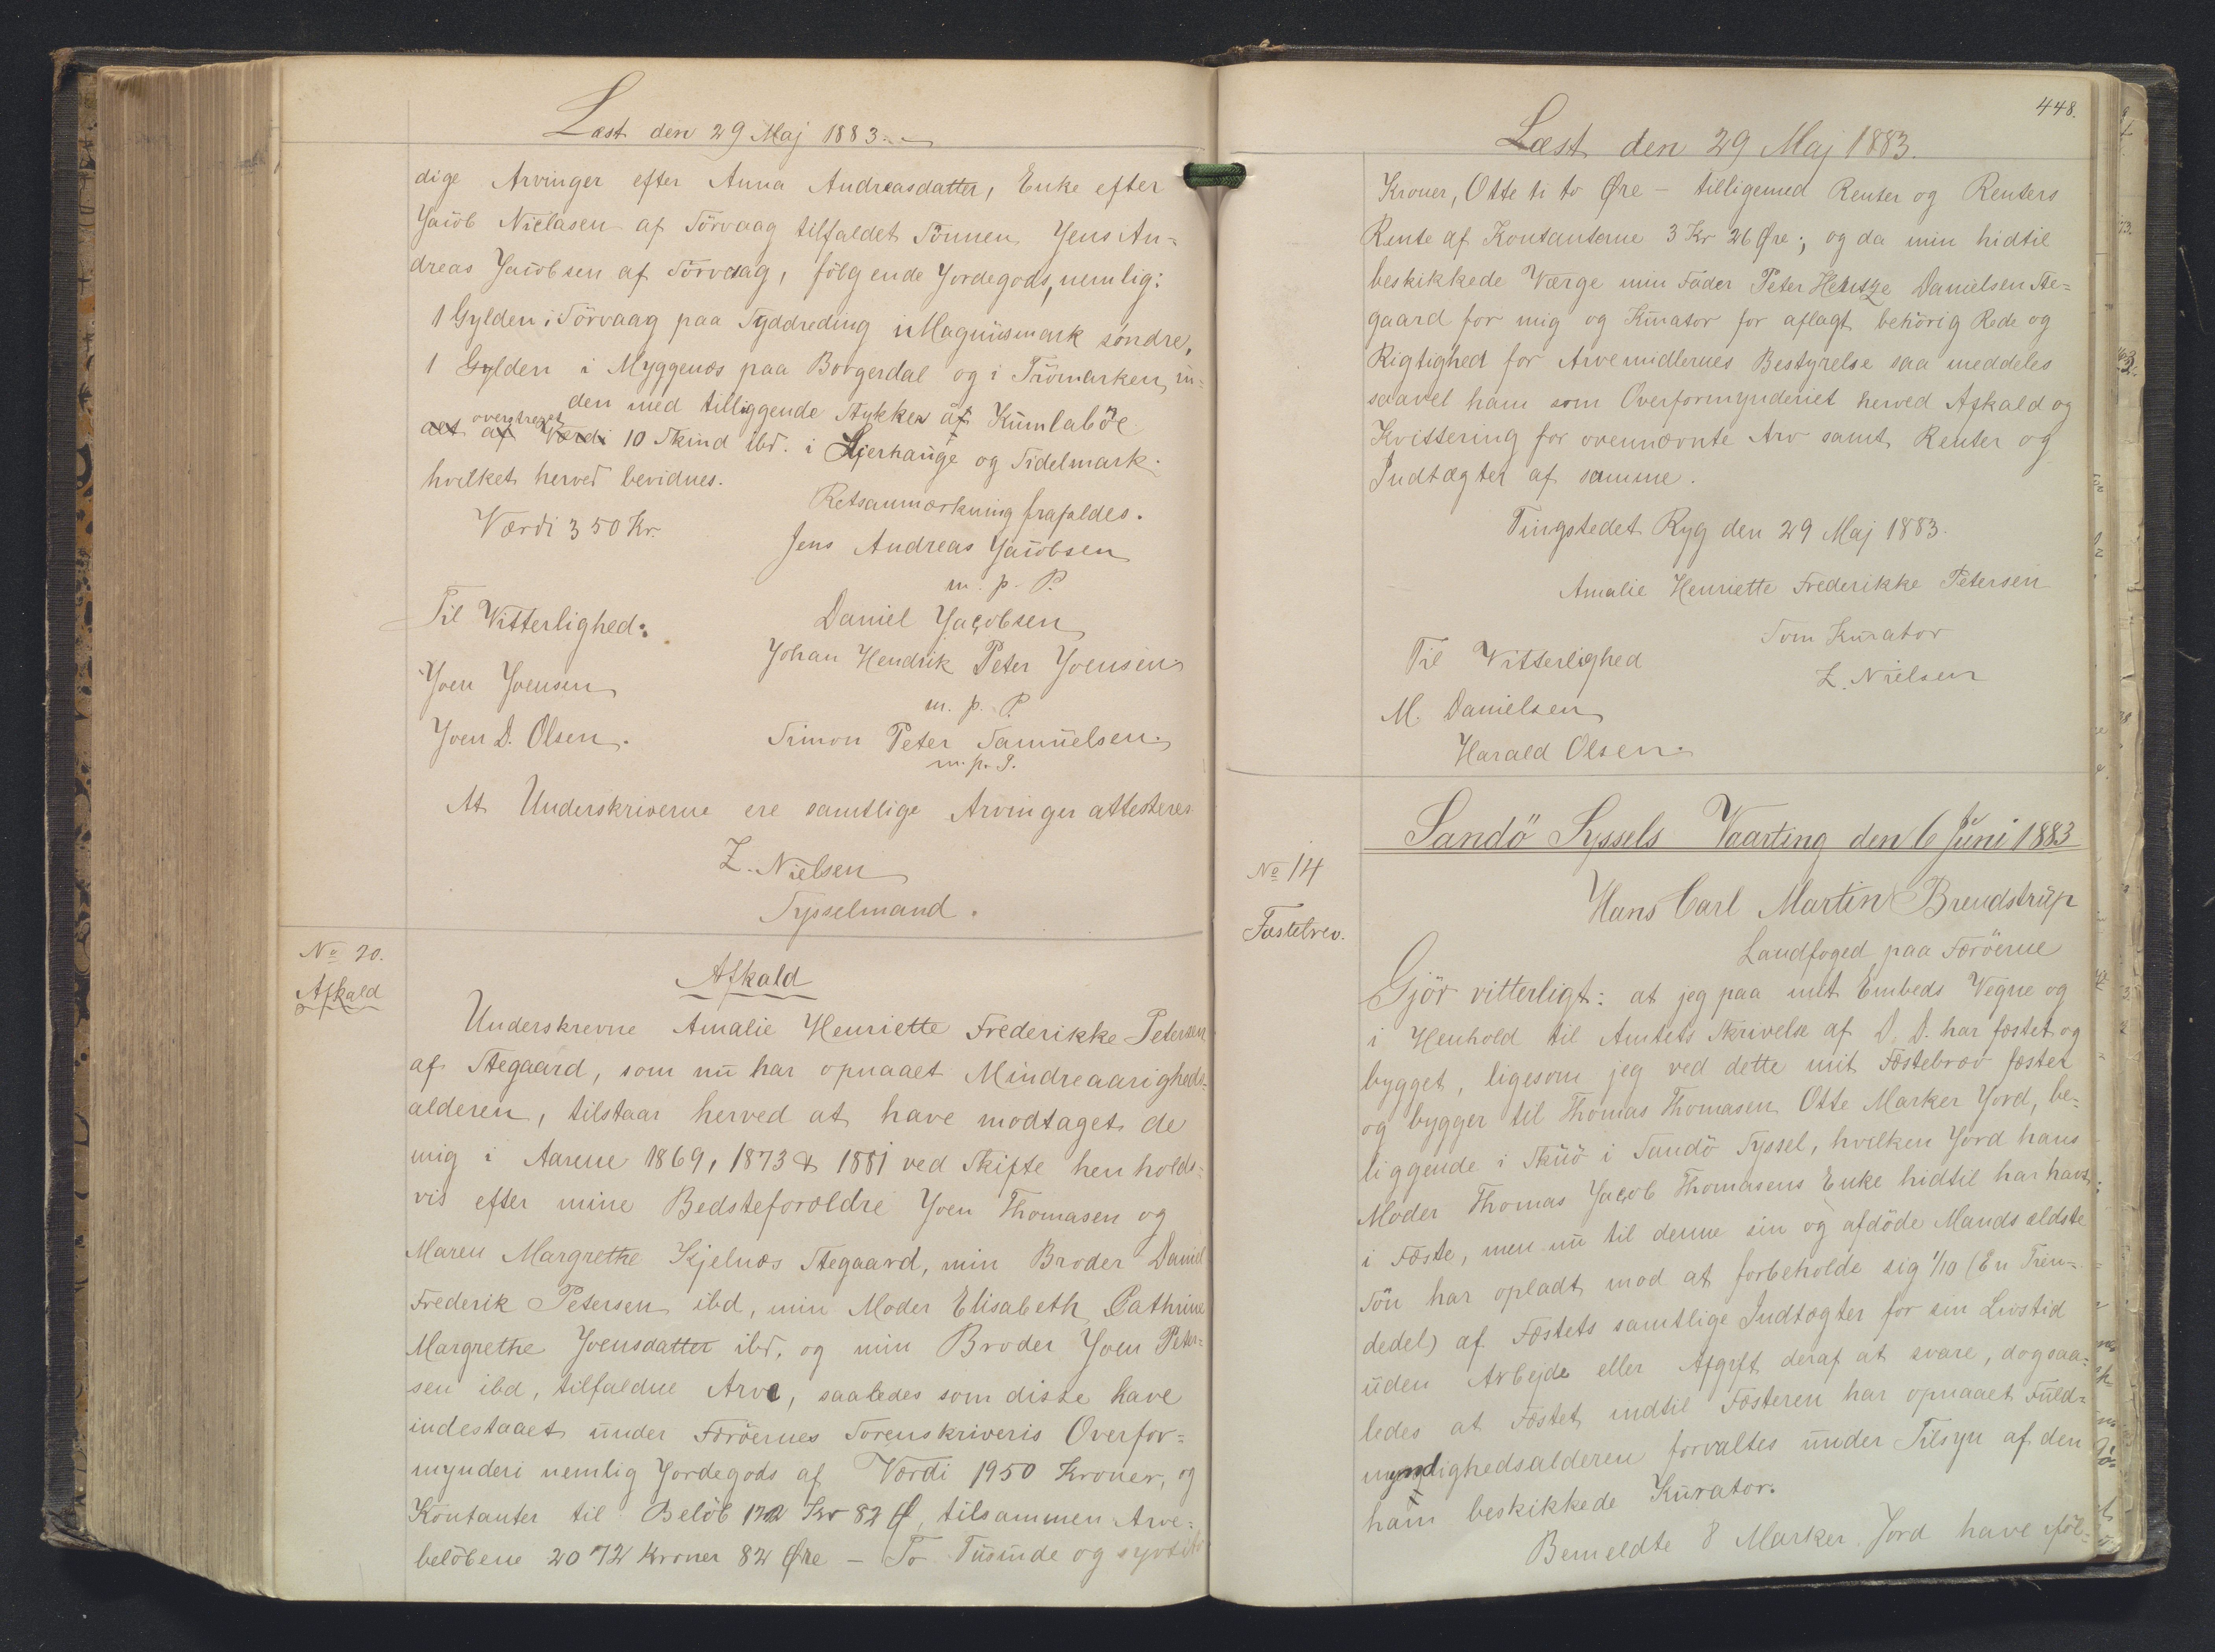 Læst den 29 Maj 1883.
dige Arvinger efter Anna Andreasdatter, Enke efter
Jacob Niclasen af Sörvaag tilfaldet Sönnen Jens An=
dreas Jacobsen af Sörvaag, fölgende Jordegods, nemlig:
1 Gylden i Sörvaag paa Syddreding i Magnusmark söndre,
1 Gylden i Myggenæs paa Borgerdal og i Trömarken, in=
den med tilliggende Stykker af Kumlaböe
overstreget
alt af Værdi 10 Skind ibd. i Lierhauge og Sidelmark.
hvilket herved bevidnes.
Retsanmærkning frafaldes.
Værdi 350 Kr.
Jens Andreas Jacobsen
m. p. P.
Til Vitterlighed:
Daniel Jacobsen
Johan Hendrik Peter Joensen
Joen Joensen
m. p. P.
Joen D. Olsen.
Simon Peter Samuelsen.
m. p. P.
At Underskriverne ere samtlige Arvinger attesteres
Z. Nielsen
Sysselmand.
No 20.
Afkald
Afkald
Underskrevne Amalie Henriette Frederikke Petersen
af Stegaard, som nu har opnaaet Mindreaarigheds=
alderen, tilstaar herved at have modtaget de
mig i Aarene 1869, 1873 & 1881 ved Skifte henholds=
vis efter mine Bedsteforældre Joen Thomasen og
Maren Margrethe Kjelnæs Stegaard, min Broder Daniel
Frederik Petersen ibd, min Moder Elisabeth Cathrine
Margrethe Joensdatter ibd. og min Broder Joen Peter=
sen ibd, tilfaldne Arve, saaledes som disse have
indestaaet under Færöernes Sorenskriveris Overfor=
mynderi nemlig Jordegods af Værdi 1950 Kroner, og
Kontanter til Belöb 122 Kr 82 Ø, tilsammen Arve=
belöbene 2072 Kroner 82 Øre — To Tusinde og syvtito
448.
Læst den 29 Maj 1883.
Kroner, Otte ti to Øre — tilligemed Renter og Renters
Rente af Kontanterne 3 Kr 26 Øre; og da min hidtil
beskikkede Værge min Fader Peter Hentze Danielsen Ste=
gaard for mig og Kurator for aflagt behörig Rede og
Rigtighed for Arvemidlernes Bestyrelse saa meddeles
saavel ham som Overformynderiet herved Afkald og
Kvittering for ovennævnte Arv samt Renter og
Indtægter af samme.
Tingstedet Ryg den 29 Maj 1883.
Amalie Henriette Frederikke Petersen
Som Kurator
Til Vitterlighed
Z. Nielsen
M. Danielsen
Harald Olsen.
Sandö Syssels Vaarting den 6 Juni 1883
No 14
Fæstebrev.
Hans Carl Martin Brendstrup
Landfoged paa Færöerne
Gjör vitterligt: at jeg paa mit Embeds Vegne og
i Henhold til Amtets Skrivelse af D. D. har fæstet og
bygget, ligesom jeg ved dette mit Fæstebrev fæster
og bygger til Thomas Thomasen Otte Marker Jord, be=
liggende i Skuö i Sandö Syssel, hvilken Jord hans
Moder Thomas Jacob Thomasens Enke hidtil har havt
i Fæste, men nu til denne sin og afdöde Mands ældste
Sön har opladt mod at forbeholde sig 1/10 (En Tien=
dedel) af Fæstets samtlige Indtægter for sin Livstid
uden Arbejde eller Afgift deraf at svare, dog saa=
ledes at Fæstet indtil Fæsteren har opnaaet Fuld=
myndighedsalderen forvaltes under Tilsyn af den
ham beskikkede Kurator.
Bemeldte 8 Marker Jord have föl=